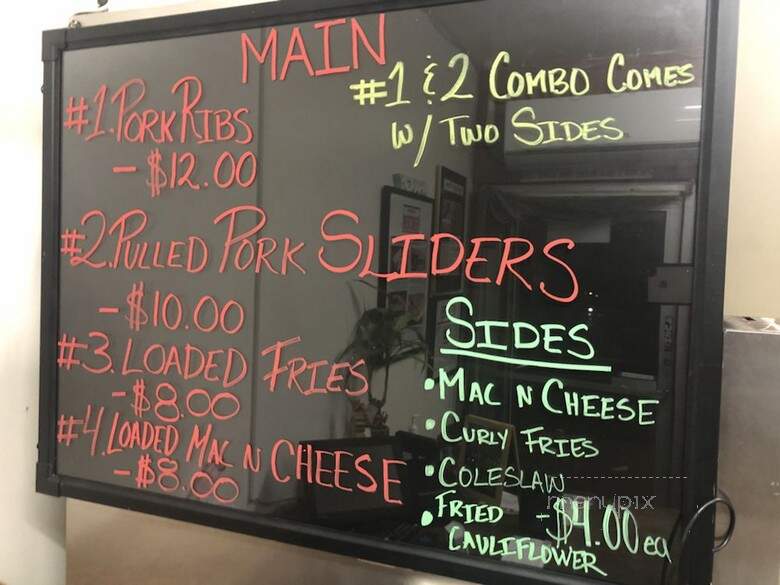 MAIN
#1. PORK RIBS
- $12.00
#2. PULLED PORK SLIDERS
- $10.00
#3. LOADED FRIES
- $8.00
#4. LOADED MAC N CHEESE
- $8.00
#1 & 2 COMBO COMES
W/ TWO SIDES
SIDES
• MAC N CHEESE
• CURLY FRIES
• COLESLAW
• FRIED CAULIFLOWER
- $4.00 ea
menupix